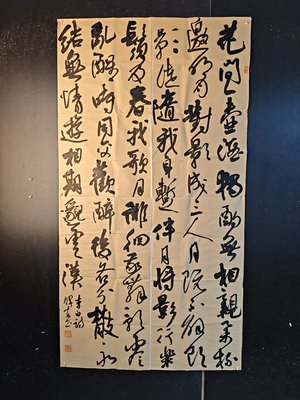 花間一壺酒獨酌無相親舉杯
邀明月對影成三人月既不解飲
影徒隨我身暫伴月將影行樂
須及春我歌月徘徊我舞影零
亂醒時同交歡醉後各分散永
結無情遊相期邈雲漢
李白詩